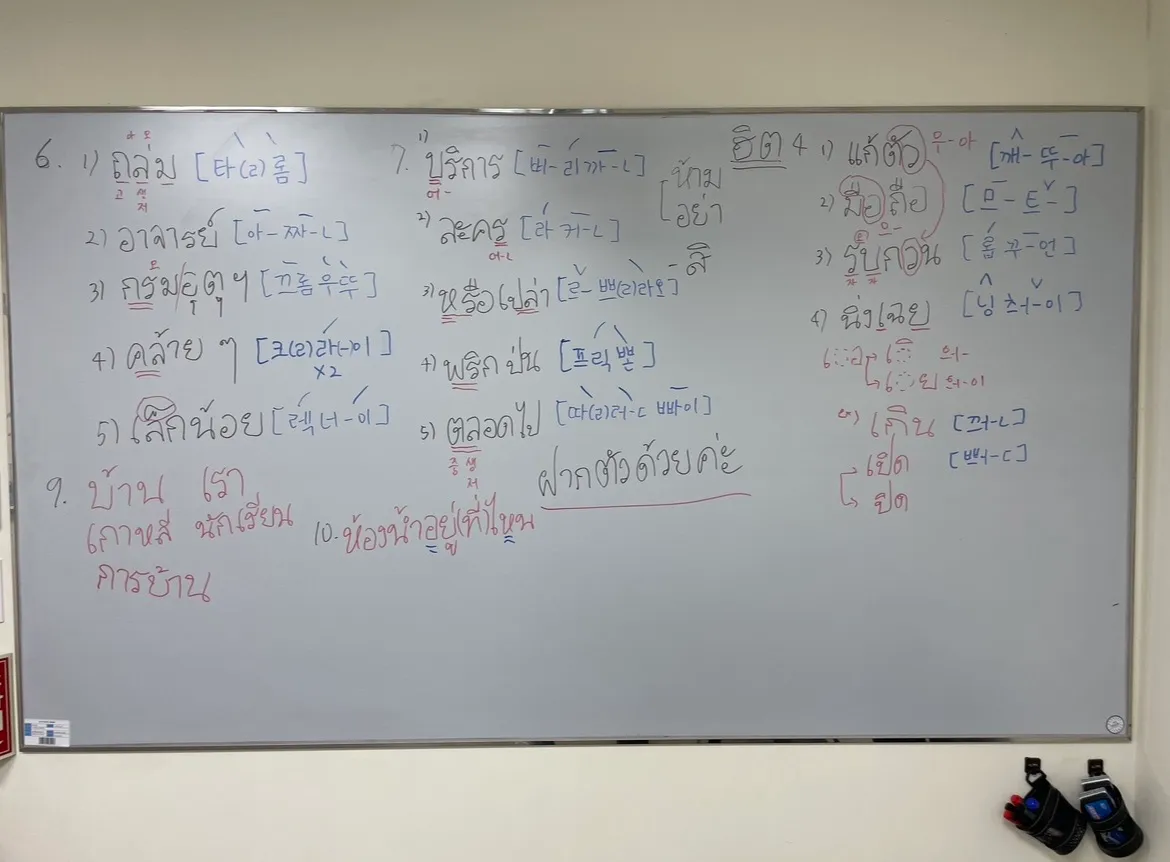 6. 1) ถล่ม [타(ㄹ)롬]
고 생 저
2) อาจารย์ [아-짜-ㄴ]
3) กรมอุตุฯ [끄롬우뚜]
4) คล้าย ๆ [크(ㄹ)라-이]
x2
5) เล็กน้อย [렉 너-이]
9. บ้าน เรา
เกาหลี นักเรียน
การบ้าน
7. 1) บริการ [버-리까-ㄴ]
어-
2) ละคร [라 커-ㄴ]
어-ㄴ
3) หรือเปล่า [르-쁘(ㄹ)라오]
4) พริกป่น [프릭 뽄]
5) ตลอดไป [따(ㄹ)러-ㄷ 빠이]
중 생 저
ห้าม
อย่า
- สิ
ฝากตัวด้วยค่ะ
10. ห้องน้ำอยู่ที่ไหน
ฮิต 4 1) แก้ตัว 우-아 [깨-뚜-아]
2) มือถือ [므-트-]
으-
3) รบกวน [롭 꾸-언]
4) นิ่งเฉย [닝 처-이]
เ-อ เ-ิ 어-
เ-ย 어-이
5) เกิน [꺼-ㄴ]
เปิด [뻐-ㄷ]
ปิด